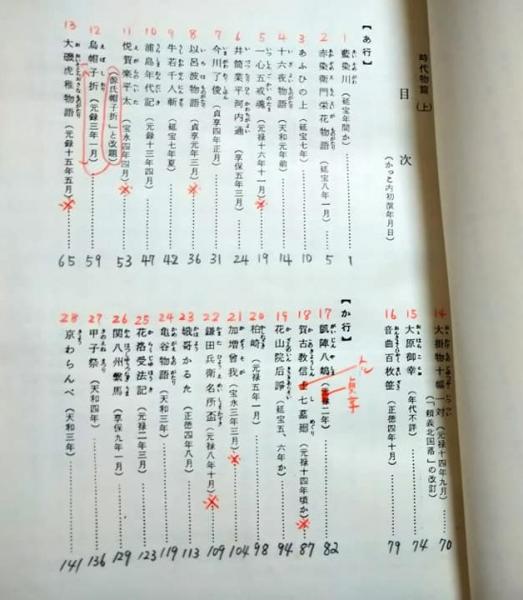 時代物篇（上）
目次
（かっこ内初演年月日）
【あ行】
1 藍染川（延宝年間か）……1
2 赤染衛門栄花物語（延宝八年一月）……5
3 あふひの上（延宝七年）……10
4 十六夜物語（天和元年）……14
5 一心五戒魂（元禄十六年十一月）……19
6 井筒業平河内通（享保五年三月）……24
7 今川了俊（貞享四年正月）……31
8 以呂波物語（貞享元年三月）……36
9 牛若千人斬（延宝七年夏）……42
10 浦島年代記（元禄十三年四月）……47
11 悦賀楽平太（宝永四年四月）……53
12 烏帽子折（元禄三年一月）……59
（「源氏烏帽子折」と改題）
13 大磯虎稚物語（元禄十五年五月）……65
14 大掛物十幅一対（元禄十四年九月）……70
（「頼義北国落」の改訂）
15 大原御幸（年代不詳）……74
16 音曲百枚笹（正徳四年十月）……79
【か行】
17 凱陣八嶋（二年）……82
貞享
18 賀古教信七墓廻（元禄十四年頃か）……87
19 花山院后諍（延宝五、六年か）……94
20 柏崎（元禄五年一月）……98
21 加増曽我（宝永三年三月）……104
22 鎌田兵衛名所盃（元禄八年十月）……109
23 娥哥かるた（正徳四年八月）……113
24 亀谷物語（天和三年）……119
25 花洛受法記（元禄二年三月）……123
26 関八州繋馬（享保九年一月）……129
27 甲子祭（天和四年）……136
28 京わらんべ（天和三年）……141